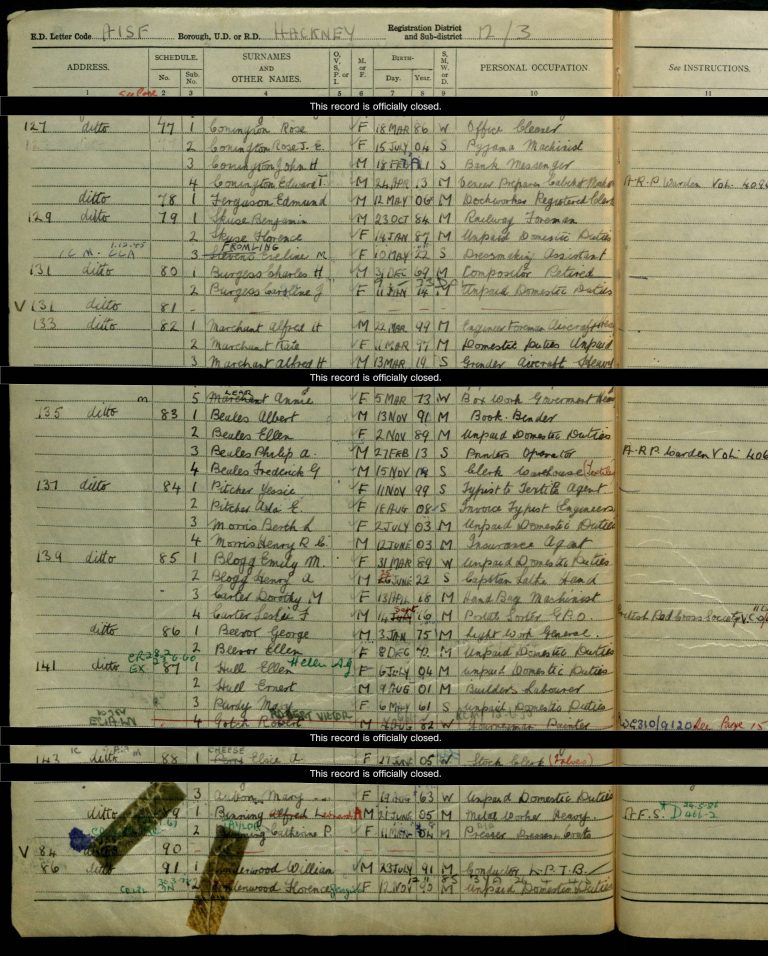 E.D. Letter Code AISF Borough, U.D. or R.D. HACKNEY Registration District and Sub-district 12/3
ADDRESS. SCHEDULE. No. Sub. No. SURNAMES AND OTHER NAMES. O., V., S., P. or I. M. or F. BIRTH— Day. Year. S., M., W. or D. PERSONAL OCCUPATION. See INSTRUCTIONS.
1 2 3 4 5 6 7 8 9 10 11
This record is officially closed.
127 ditto 77 1 Conington Rose F 18 MAR 86 W Office Cleaner
2 Conington Rose J. E. F 15 July 04 S Pyjama Machinist
3 Conington John H M 18 FEB 11 S Bank Messenger
4 Conington Edward T. M 24 APR 13 M Veneer Preparer Cabinet A.R.P. Warden Vol.
ditto 78 1 Ferguson Edmund M 12 MAY 06 M Dockworker Registered Clerk
129 ditto 79 1 Skuse Benjamin M 23 OCT 84 M Railway Foreman
2 Skuse Florence F 14 JAN 87 M Unpaid Domestic Duties
FROMLING
3 Stevens Eveline M. F 10 MAY 22 S Dressmaking Assistant
131 ditto 80 1 Burgess Charles H M 31 DEC 69 M Compositor Retired
2 Burgess Caroline J F 11 JAN 74 M Unpaid Domestic Duties
V 131 ditto 81 - - - - -
133 ditto 82 1 Marchant Alfred H M 22 MAR 99 M Engineer Foreman Aircraft
2 Marchant Kate F 11 MAR 97 M Domestic Duties Unpaid
3 Marchant Albert H M 13 MAR 19 S Grinder Aircraft Heavy
This record is officially closed.
m 5 Marchant Annie F 5 MAR 73 W Box Work Government
135 ditto 83 1 Beales Albert M 13 NOV 91 M Book Binder
2 Beales Ellen F 2 NOV 89 M Unpaid Domestic Duties
3 Beales Philip A. M 27 FEB 13 S Printers Operator A.R.P. Warden Vol. 406
4 Beales Frederick G M 15 NOV 19 S Clerk Warehouse (Textiles
137 ditto 84 1 Pitcher Jessie F 11 NOV 99 S Typist to Textile Agent
2 Pitcher Ada E. F 18 AUG 08 S Invoice Typist Engineers
3 Morris Berth L F 2 JULY 03 M Unpaid Domestic Duties
4 Morris Henry R. C. M 12 JUNE 03 M Insurance Agent
139 ditto 85 1 Blogg Emily M. F 31 MAR 89 W Unpaid Domestic Duties
2 Blogg Henry A M 26 JUNE 22 S Capstan Lathe Hand
3 Carter Dorothy M F 13 APRIL 18 M Hand Bag Machinist
4 Carter Leslie F M 14 Sept 19 M Postal Sorter G.P.O. British Red Cross Society
ditto 86 1 Beevor George M 3 JAN 75 M Light Work General
2 Beevor Ellen F 8 DEC 72 M Unpaid Domestic Duties
141 ditto EX 87 1 Hull Ellen Helen F 6 July 04 M Unpaid Domestic Duties
2 Hull Ernest M 9 AUG 01 M Builders Labourer
3 Purdy Mary F 6 MAY 61 S Unpaid Domestic Duties
4 Gotch Robert VICTOR M 82 W Journeyman Painter WE310/9120 See Page 15
This record is officially closed.
143 ditto 88 1 CHEESE Elsie A F JUNE 05 Stock Clerk (Valves)
This record is officially closed.
3 Mary F 19 AUG 63 W Unpaid Domestic Duties
ditto 89 1 Benning Alfred Leonard A M 21 JUNE 05 M Metal Worker Heavy A.F.S.
TAYLOR
2 Benning Catherine P. F 11 MAR 04 M Presser Dresses Coats
V 84 ditto 90 - - - - -
86 ditto 91 1 Underwood William M 23 July 91 M Conductor L.P.T.B.
2 Underwood Florence F 12 NOV 90 M Unpaid Domestic Duties